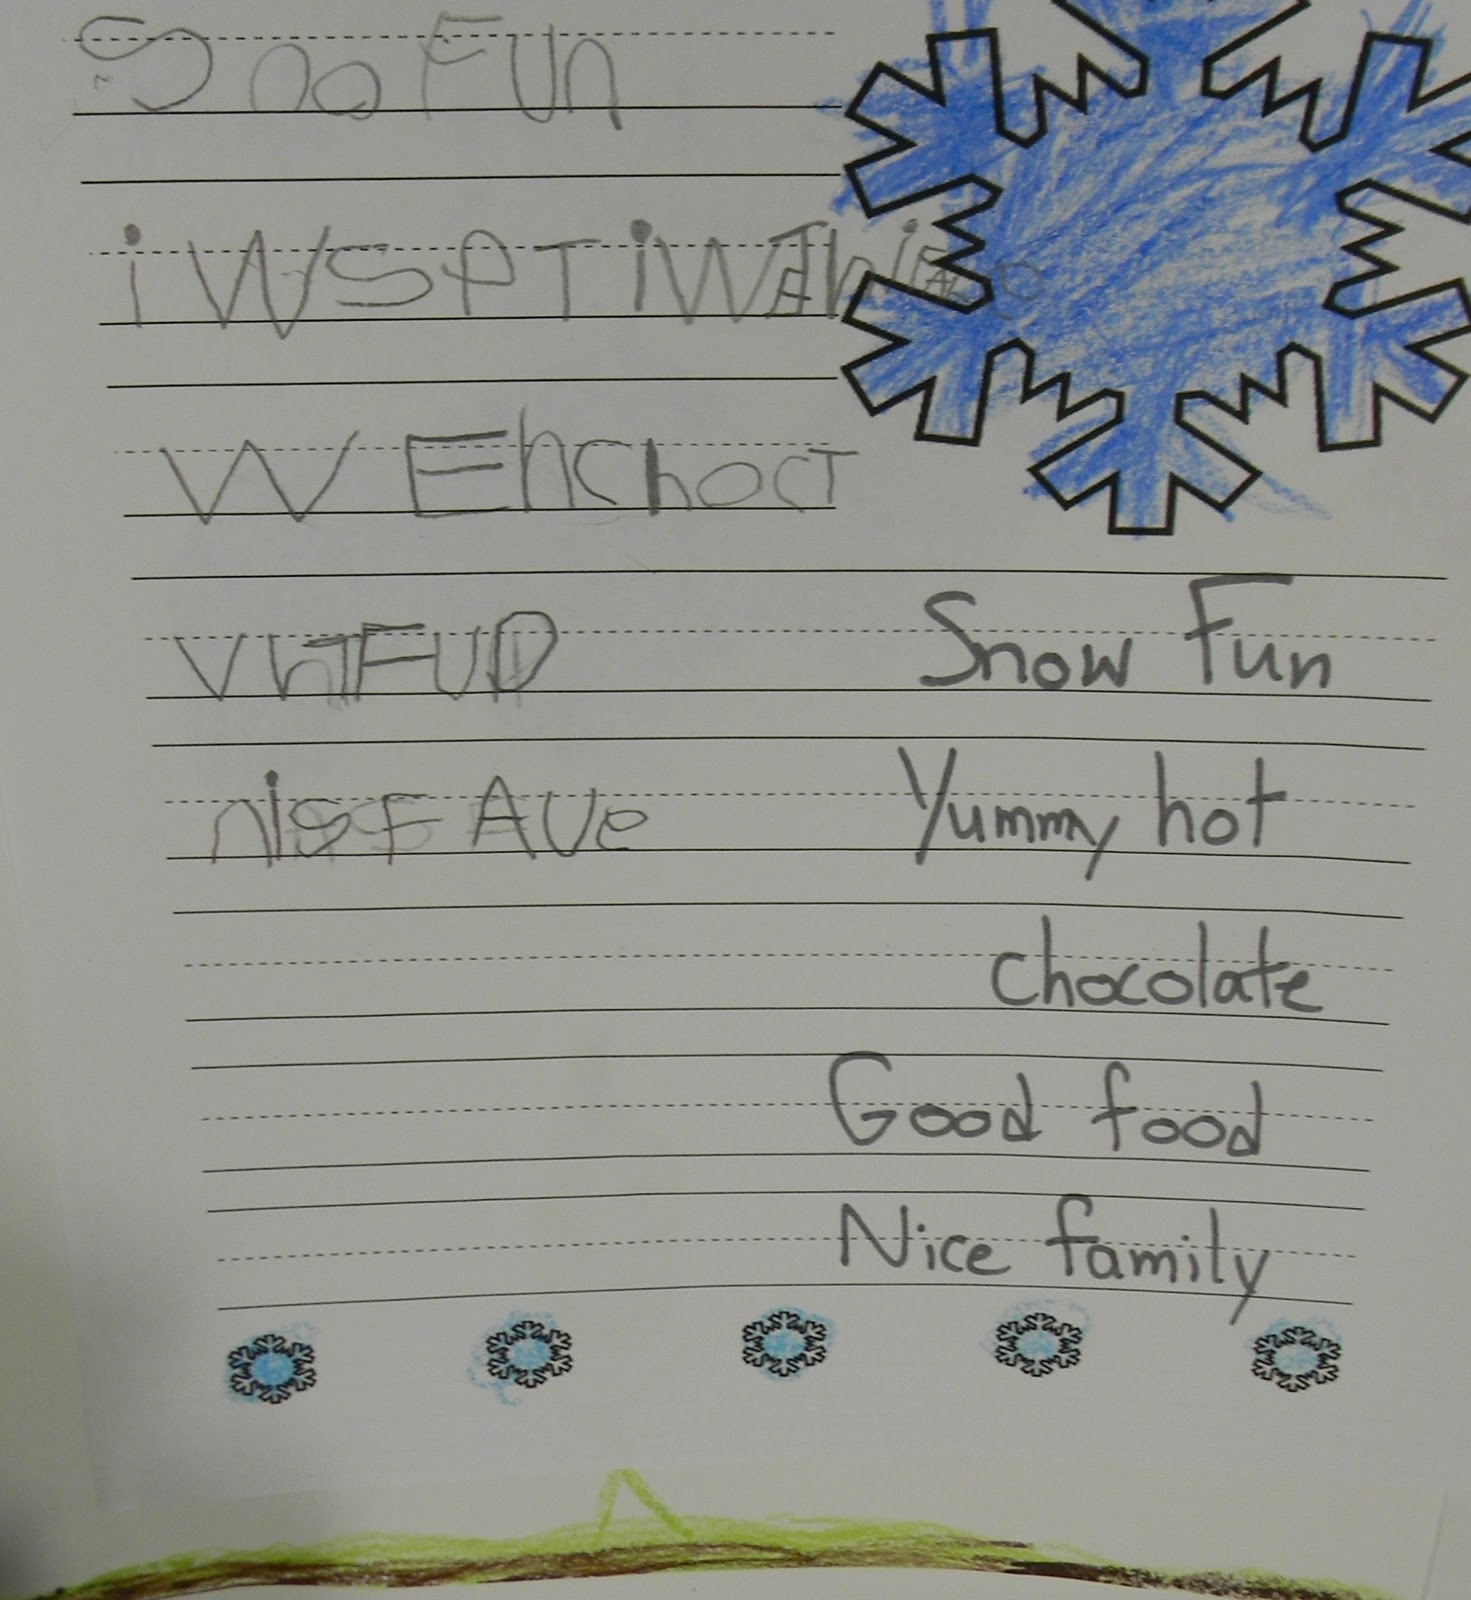 Sno Fun
i WSPT iWAN
WEhchocT
VhTFUD
nisFAVe
Snow Fun
Yummy hot
chocolate
Good food
Nice family